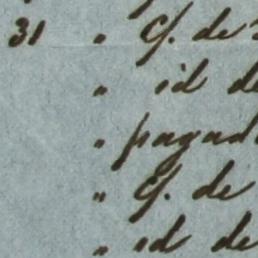 31 " C/. de
" id de
" pagad
" C/. de
" id de